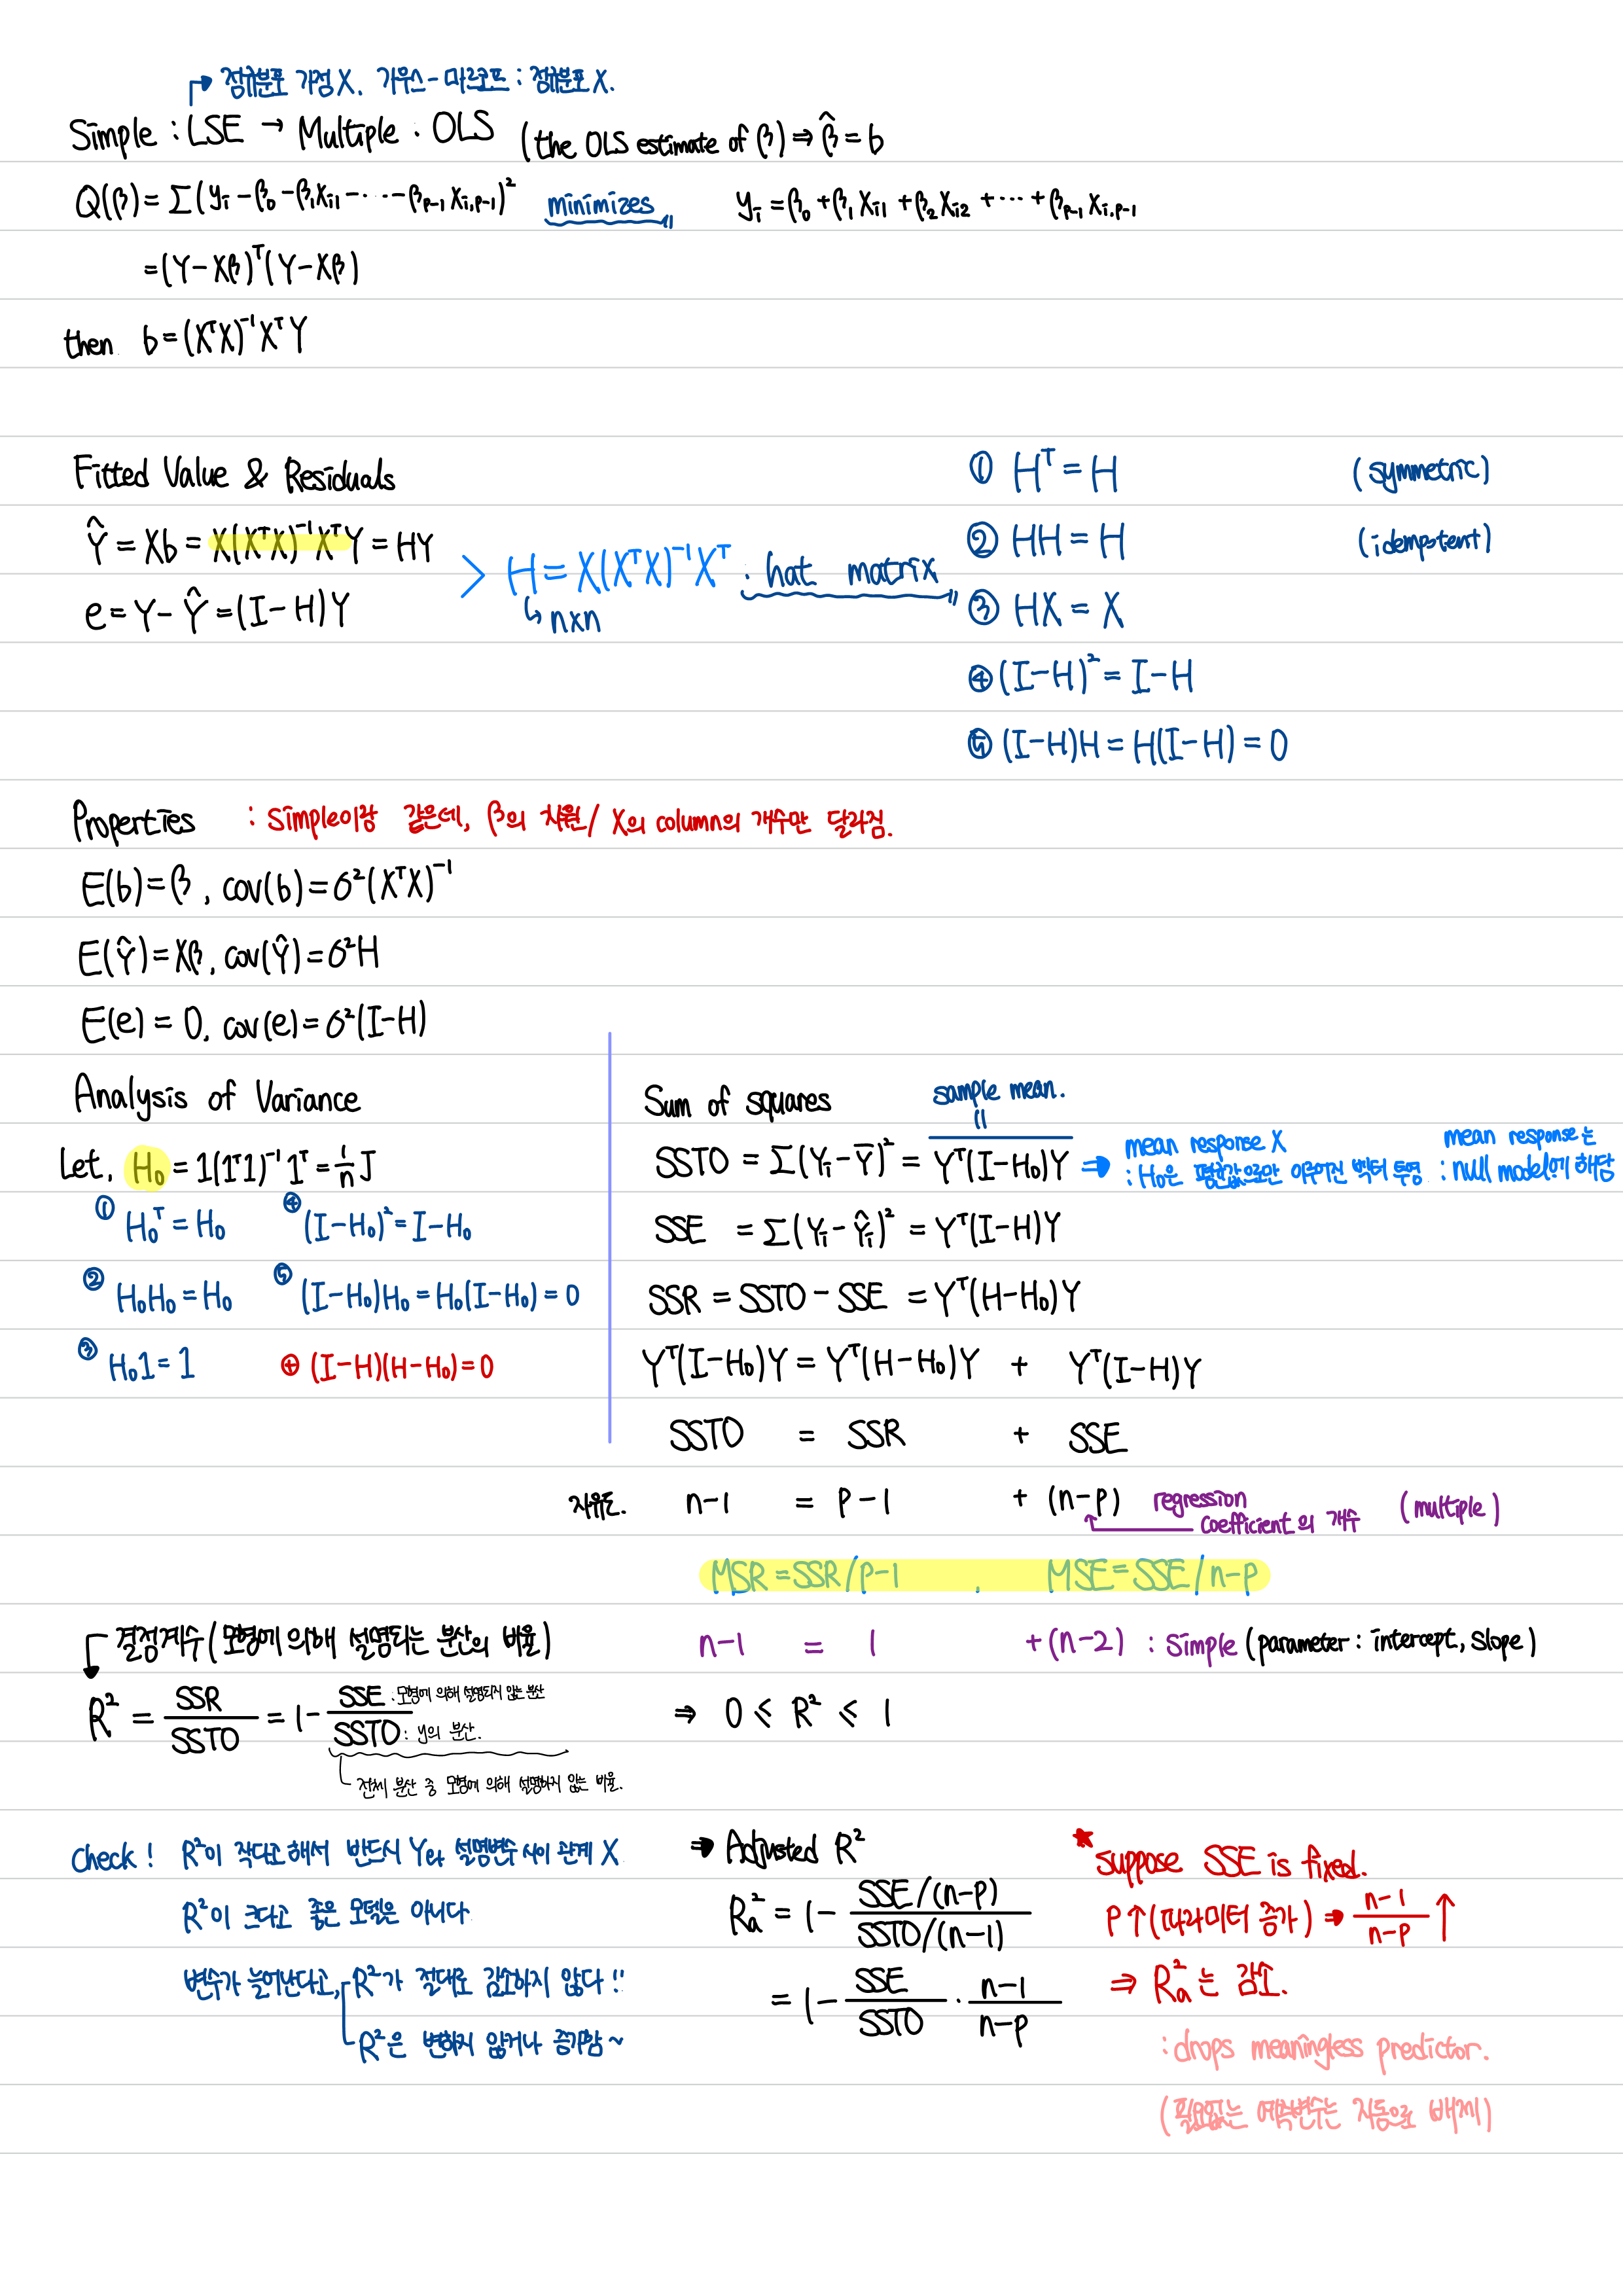 정규분포 가정 X. 가우스-마르코프 : 정규분포 X.
Simple : LSE → Multiple : OLS (the OLS estimate of β) ⇒ β̂ = b
Q(β) = Σ(yᵢ - β₀ - β₁Xᵢ₁ - ··· - βₚ₋₁Xᵢ,ₚ₋₁)² minimizes yᵢ = β₀ + β₁Xᵢ₁ + β₂Xᵢ₂ + ··· + βₚ₋₁Xᵢ,ₚ₋₁
= (Y - Xβ)ᵀ(Y - Xβ)
then b = (XᵀX)⁻¹XᵀY
Fitted Value & Residuals
Ŷ = Xb = X(XᵀX)⁻¹XᵀY = HY
e = Y - Ŷ = (I - H)Y
> H = X(XᵀX)⁻¹Xᵀ : hat matrix
↳ n×n
① Hᵀ = H (symmetric)
② HH = H (idempotent)
③ HX = X
④ (I - H)² = I - H
⑤ (I - H)H = H(I - H) = 0
Properties : Simple이랑 같은데, β의 차원 / X의 column의 개수만 달라짐.
E(b) = β, cov(b) = σ²(XᵀX)⁻¹
E(Ŷ) = Xβ, cov(Ŷ) = σ²H
E(e) = 0, cov(e) = σ²(I - H)
Analysis of Variance
Let, H₀ = 1(1ᵀ1)⁻¹1ᵀ = 1/n J
① H₀ᵀ = H₀ ④ (I - H₀)² = I - H₀
② H₀H₀ = H₀ ⑤ (I - H₀)H₀ = H₀(I - H₀) = 0
③ H₀1 = 1 ⊕ (I - H)(H - H₀) = 0
Sum of squares
sample mean.
SSTO = Σ(Yᵢ - Ȳ)² = Yᵀ(I - H₀)Y ⇒ mean response X
: H₀은 평균값으로만 이루어진 벡터 투영
mean response는
: null model에 해당
SSE = Σ(Yᵢ - Ŷᵢ)² = Yᵀ(I - H)Y
SSR = SSTO - SSE = Yᵀ(H - H₀)Y
Yᵀ(I - H₀)Y = Yᵀ(H - H₀)Y + Yᵀ(I - H)Y
SSTO = SSR + SSE
자유도. n-1 = p-1 + (n-p) regression coefficient의 개수 (multiple)
MSR = SSR/p-1 , MSE = SSE/n-p
n-1 = 1 + (n-2) : simple (parameter : intercept, slope)
결정계수 (모형에 의해 설명되는 분산의 비율)
R² = SSR/SSTO = 1 - SSE/SSTO ⇒ 0 ≤ R² ≤ 1
SSE : 모형에 의해 설명되지 않는 분산
SSTO : y의 분산.
전체 분산 중 모형에 의해 설명하지 않는 비율.
Check ! R²이 작다고 해서 반드시 Y와 설명변수 사이 관계 X.
R²이 크다고 좋은 모델은 아니다.
변수가 늘어난다고, R²가 절대로 감소하지 않다 !!
R²은 변하지 않거나 증가함 ~
⇒ Adjusted R²
Rₐ² = 1 - SSE/(n-p) / SSTO/(n-1)
= 1 - SSE/SSTO · n-1/n-p
★ suppose SSE is fixed.
P↑ (파라미터 증가) ⇒ n-1/n-p ↑
⇒ Rₐ²는 감소.
: drops meaningless predictor.
(필요없는 예측변수는 자동으로 배제)